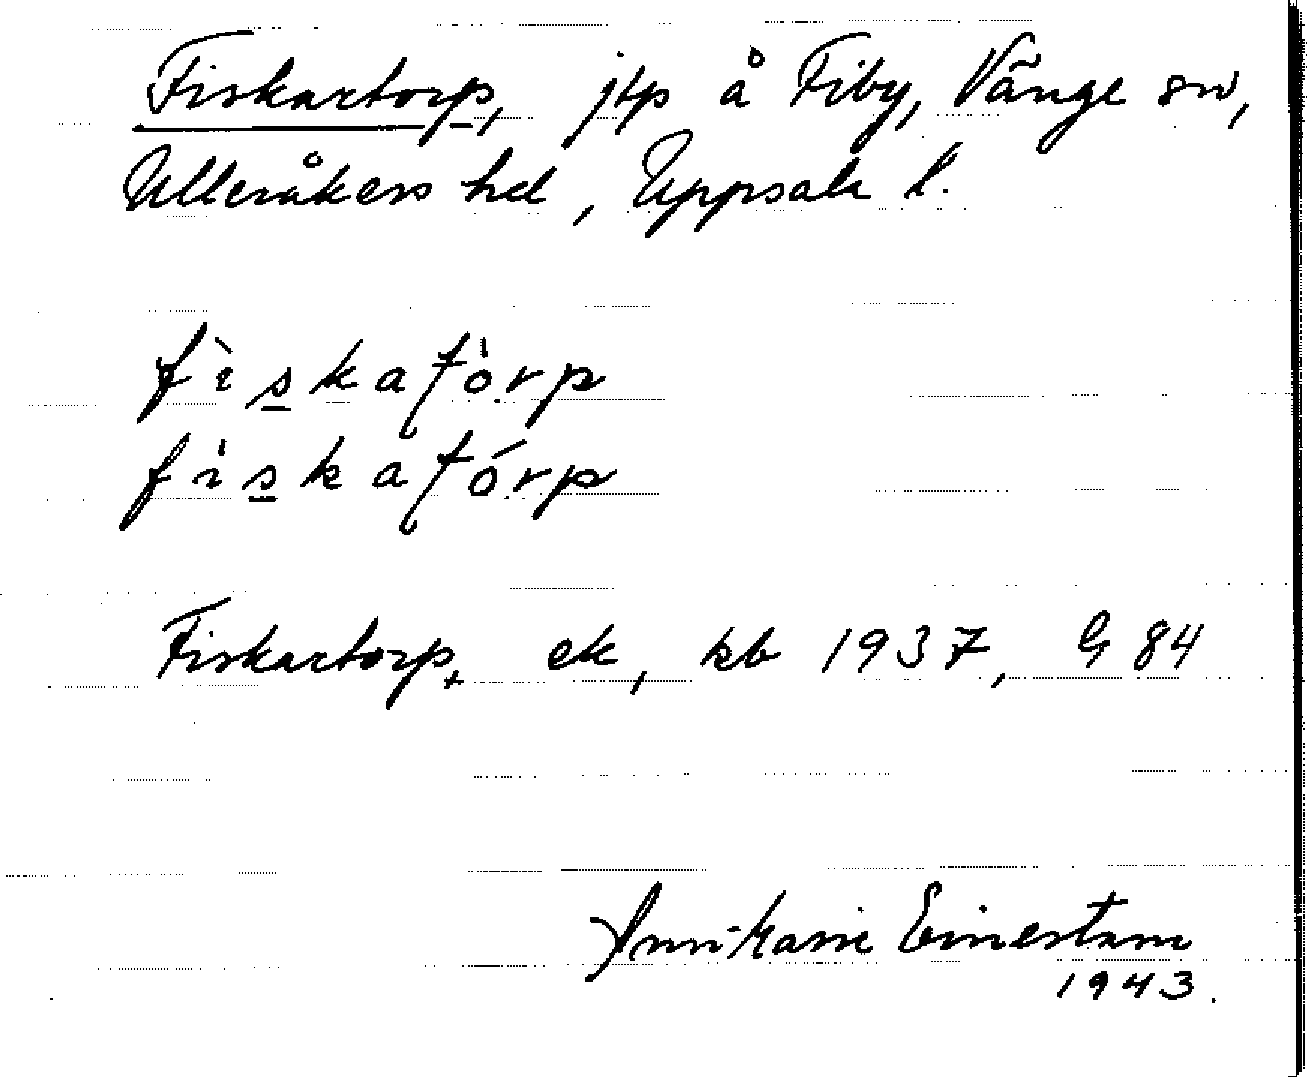 Fiskartorp, jtp å Fiby, Vänge sn,
Ulleråkers hd, Uppsala l.
fìskatòrp
fìskatórp
Fiskartorp, ek, kb 1937, G 84
Ann-Marie Einerstam
1943.